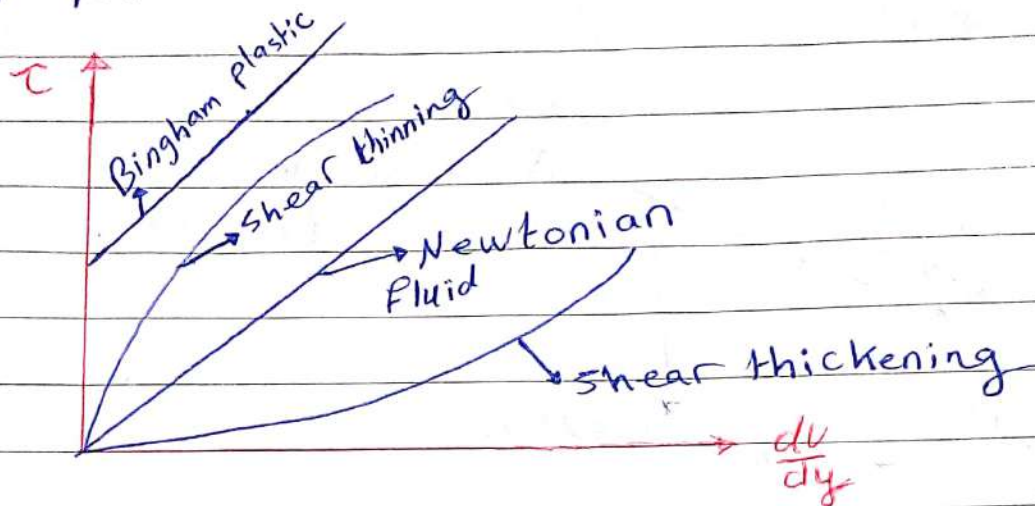 τ
Bingham plastic
shear thinning
Newtonian
fluid
shear thickening
dv
dy